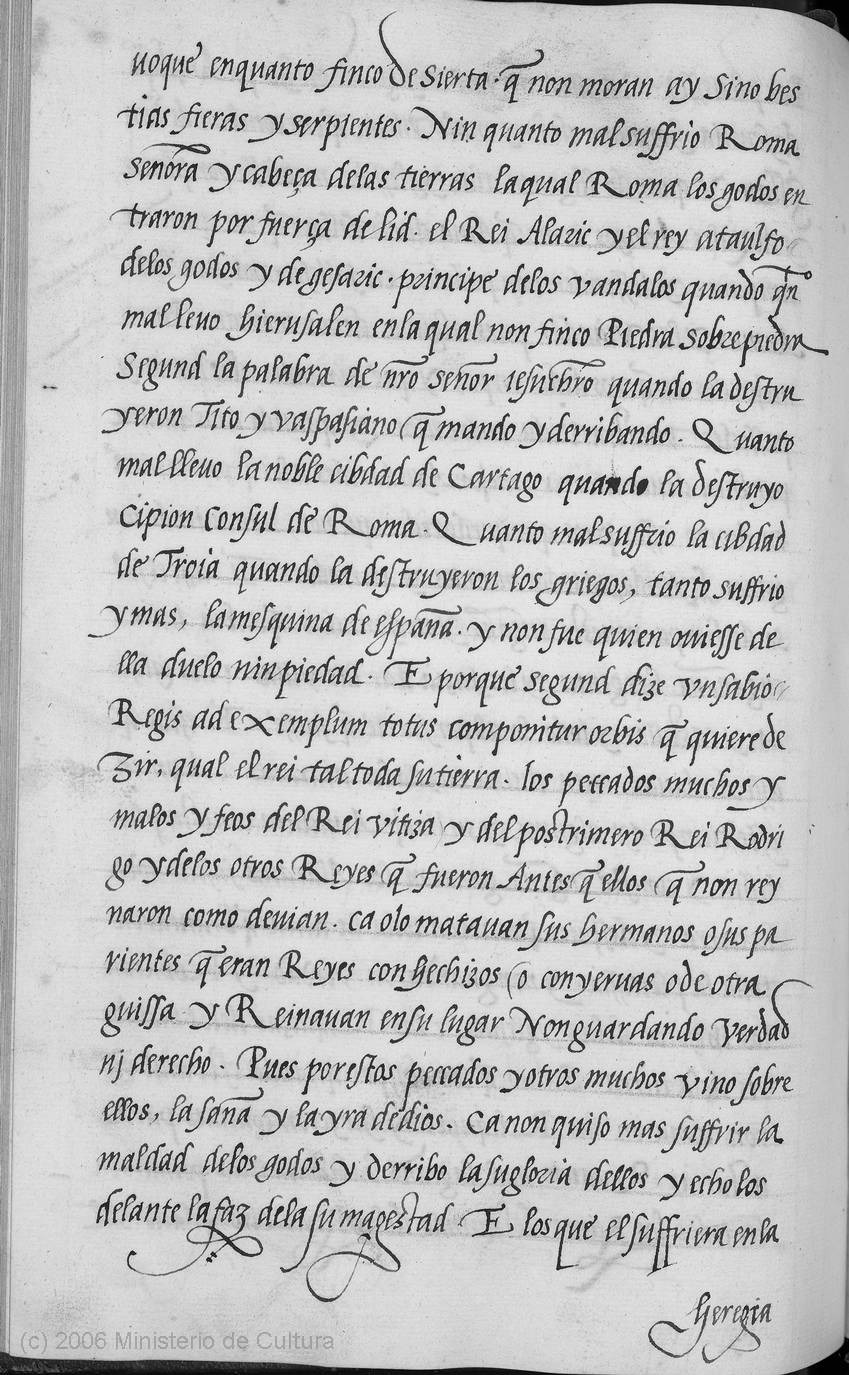 uoque enquanto finco desierta. q̃ non moran ay sino bes
tias fieras y serpientes. Nin quanto mal suffrio Roma
señora y cabeça delas tierras laqual Roma los godos en
traron por fuerça de lid. el Rei Alaric y el rey ataulfo
delos godos y de gesaric. principe delos vandalos quando qñto
mal leuo hierusalen enla qual non finco Piedra sobre piedra
Segund la palabra de nr̃o señor iesuchr̃o quando la destru
yeron Tito y vaspasiano q̃ mando y derribando. Quanto
mal lleuo la noble cibdad de Cartago quando la destruyo
Cipion Consul de Roma. Quanto mal suffrio la cibdad
de Troia quando la destruyeron los griegos, tanto suffrio
y mas, la mesquina de españa. y non fue quien ouiesse de
lla duelo nin piedad. E porque segund dize vn sabio
Regis ad exemplum totus componitur orbis q̃ quiere de
Zir, qual el rei tal toda su tierra. los peccados muchos y
malos y feos del Rei vitiza y del postrimero Rei Rodri
go y delos otros Reyes q̃ fueron Antes q̃ ellos q̃ non rey
naron como deuian. ca o lo matauan sus hermanos o sus pa
rientes q̃ eran Reyes con hechizos o con yeruas o de otra
guissa y Reinauan en su lugar Non guardando verdad
nj derecho. Pues por estos peccados y otros muchos vino sobre
ellos, la saña y la yra de dios. Ca non quiso mas suffrir la
maldad delos godos y derribo la su gloria dellos y echo los
delante la faz dela su magestad. E los que el suffriera en la
heregia
(c) 2006 Ministerio de Cultura